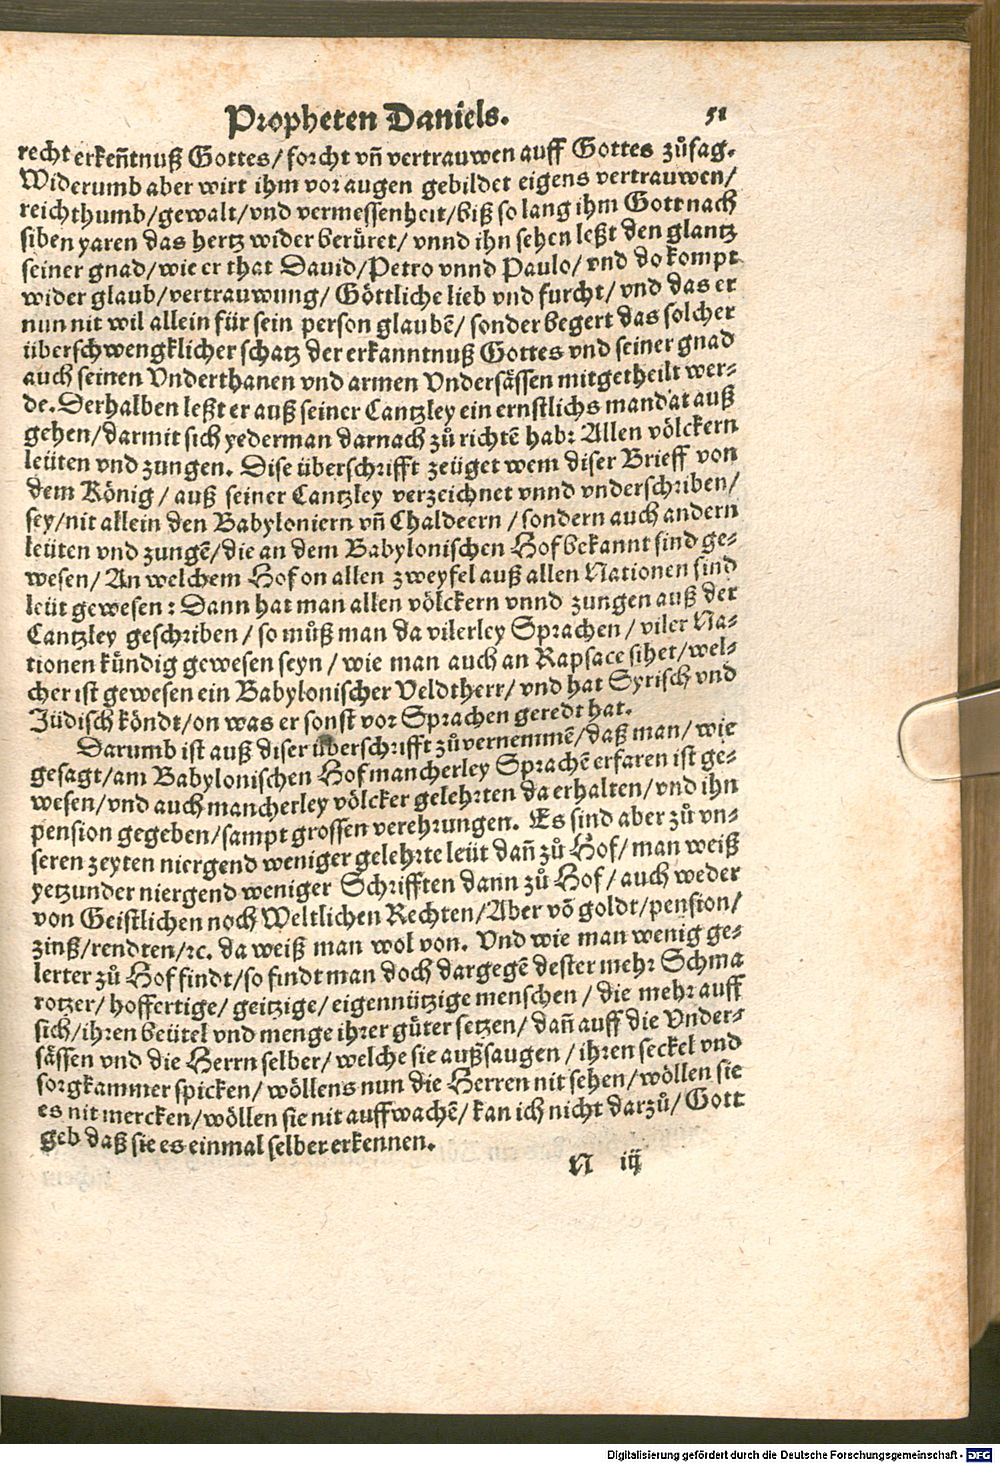 Propheten Daniels. 51
recht erkeñtnuß Gottes/ forcht vñ vertrauwen auff Gottes zůsag.
Widerumb aber wirt ihm vor augen gebildet eigens vertrauwen/
reichthumb/gewalt/vnd vermessenheit/biß so lang ihm Gott nach
siben yaren das hertz wider berůret/ vnnd ihn sehen leßt den glantz
seiner gnad/wie er that Dauid/Petro vnnd Paulo/ vnd do kompt
wider glaub/vertrauwung/ Göttliche lieb vnd furcht/ vnd das er
nun nit wil allein für sein person glaubē/ sonder begert das solcher
überschwengklicher schatz der erkanntnuß Gottes vnd seiner gnad
auch seinen Vnderthanen vnd armen Vndersässen mitgetheilt wer-
de. Derhalben leßt er auß seiner Cantzley ein ernstlichs mandat auß
gehen/darmit sich yederman darnach zů richtē hab: Allen völckern
leüten vnd zungen. Dise überschrifft zeüget wem diser Brieff von
dem König/ auß seiner Cantzley verzeichnet vnnd vnderschriben/
sey/nit allein den Babyloniern vñ Chaldeern/sondern auch andern
leüten vnd zungē/die an dem Babylonischen Hof bekannt sind ge-
wesen/ An welchem Hof on allen zweyfel auß allen Nationen sind
leüt gewesen: Dann hat man allen völckern vnnd zungen auß der
Cantzley geschriben/ so můß man da vilerley Sprachen/ viler Na-
tionen kündig gewesen seyn/ wie man auch an Rapsace sihet/wel-
cher ist gewesen ein Babylonischer Veldtherr/ vnd hat Syrisch vnd
Jüdisch köndt/on was er sonst vor Sprachen geredt hat.
Darumb ist auß diser überschrifft zůvernemmē/daß man/ wie
gesagt/am Babylonischen Hof mancherley Sprachē erfaren ist ge-
wesen/vnd auch mancherley völcker gelehrten da erhalten/vnd ihn
pension gegeben/sampt grossen verehrungen. Es sind aber zů vn-
seren zeyten niergend weniger gelehrte leüt dañ zů Hof/ man weiß
yetzunder niergend weniger Schrifften dann zů Hof/ auch weder
von Geistlichen noch Weltlichen Rechten/Aber vō goldt/pension/
zinß/rendten/ꝛc. da weiß man wol von. Vnd wie man wenig ge-
lerter zů Hof findt/so findt man doch dargegē dester mehr Schma
rotzer/ hoffertige/ geitzige/ eigennützige menschen/ die mehr auff
sich/ihren beütel vnd menge ihrer güter setzen/ dañ auff die Vnder-
sässen vnd die Herrn selber/ welche sie außsaugen/ihren seckel vnd
sorgkammer spicken/ wöllens nun die Herren nit sehen/wöllen sie
es nit mercken/wöllen sie nit auffwachē/ kan ich nicht darzů/ Gott
geb daß sie es einmal selber erkennen.
N iij
Digitalisierung gefördert durch die Deutsche Forschungsgemeinschaft - DFG